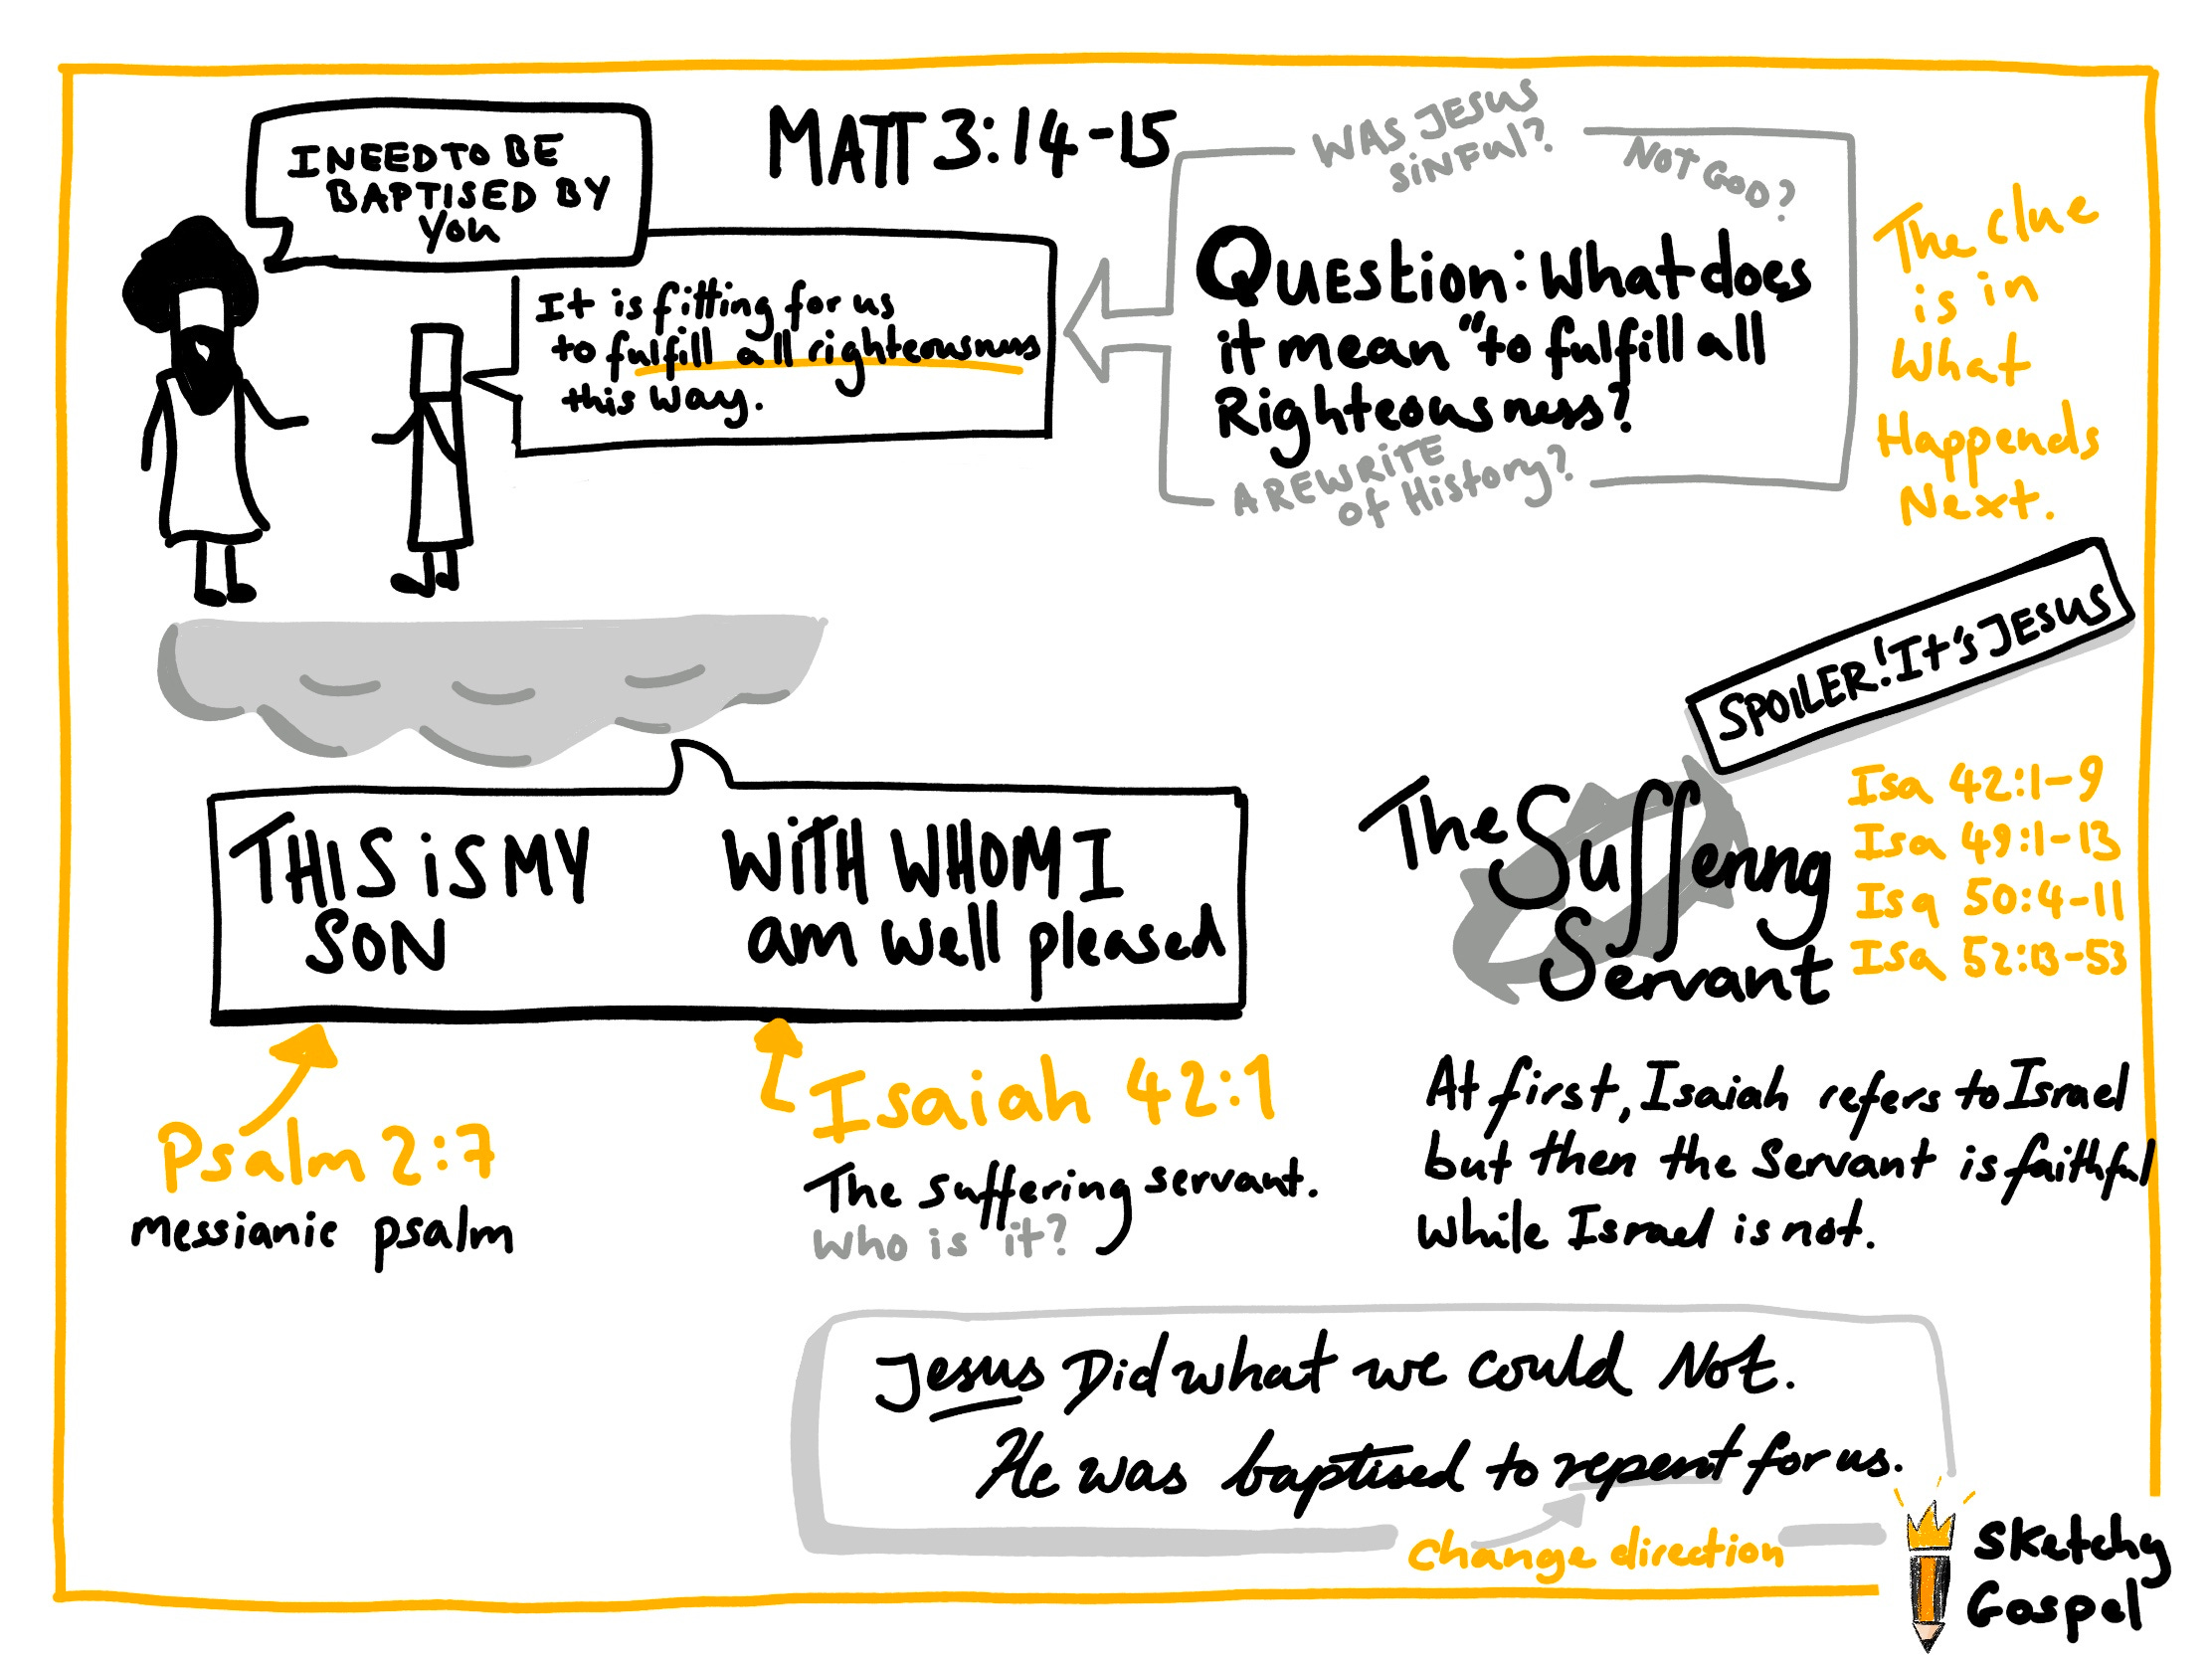 MATT 3:14-15
I NEED TO BE
BAPTISED BY
You
It is fitting for us
to fulfill all righteousness
this way.
WAS JESUS
SINFUL?
NOT GOD?
Question: What does
it mean "to fulfill all
Righteousness?
A REWRITE
of History?
The clue
is in
What
Happends
Next.
SPOILER! It's JESUS
THIS iS MY
SON
WITH WHOM I
am well pleased
Psalm 2:7
messianic psalm
Isaiah 42:1
The suffering servant.
Who is it?
The Suffering
Servant
Isa 42:1-9
Isa 49:1-13
Isa 50:4-11
Isa 52:13-53
At first, Isaiah refers to Israel
but then the Servant is faithful
while Israel is not.
Jesus Did what we could Not.
He was baptised to repent for us.
change direction
Sketchy
Gospel